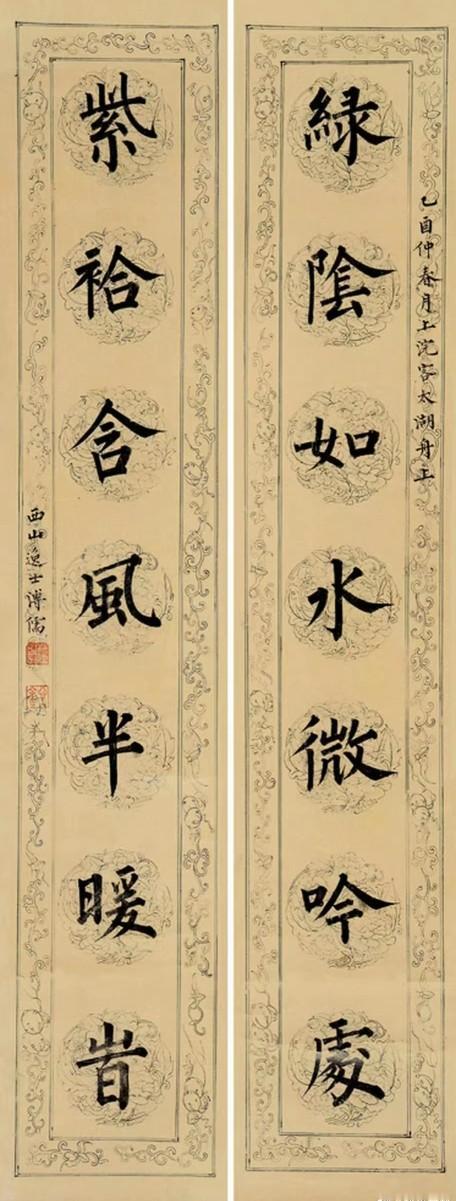 乙酉仲春月上浣客太湖舟上
綠陰如水微吟處
紫袷含風半暖旹
西山逸士溥儒